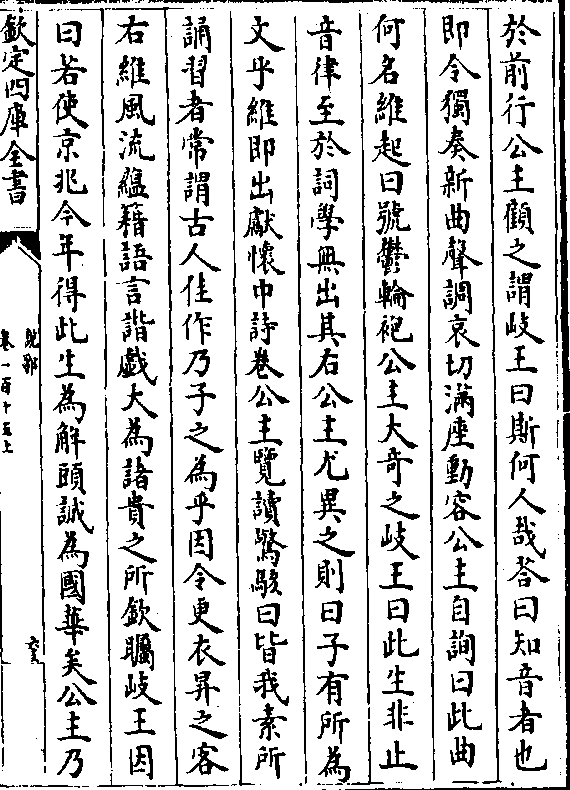 於前行公主顧之謂岐王曰斯何人哉荅曰知音者也
即令獨奏新曲聲調哀切滿座動容公主自詢曰此曲
何名維起曰號鬱輪袍公主大奇之岐王曰此生非止
音律至於詞學無出其右公主尤異之則曰子有所為
文乎維即出獻懷中詩卷公主覽讀驚駭曰皆我素所
誦習者常謂古人佳作乃子之為乎因令更衣昇之客
右維風流蘊藉語言諧戲大為諸貴之所欽矚岐王因
曰若使京兆今年得此生為解頭誠為國華矣公主乃
欽定四庫全書
說郛
卷一百十五上